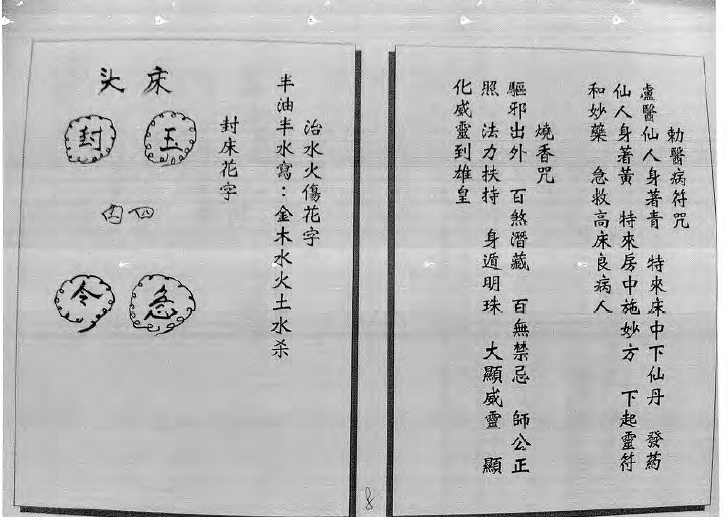 勅醫病符咒
盧醫仙人身著青 特來床中下仙丹 發药
仙人身著黃 特來房中施妙方 下起靈符
和妙藥 急救高床良病人
燒香咒
驅邪出外 百煞潛藏 百無禁忌 師公正
照 法力扶持 身遁明珠 大顯威靈 顯
化威靈到雄皇
治水火傷花字
半油半水寫：金木水火土水杀
封床花字
床头
玉 封
急 令
8